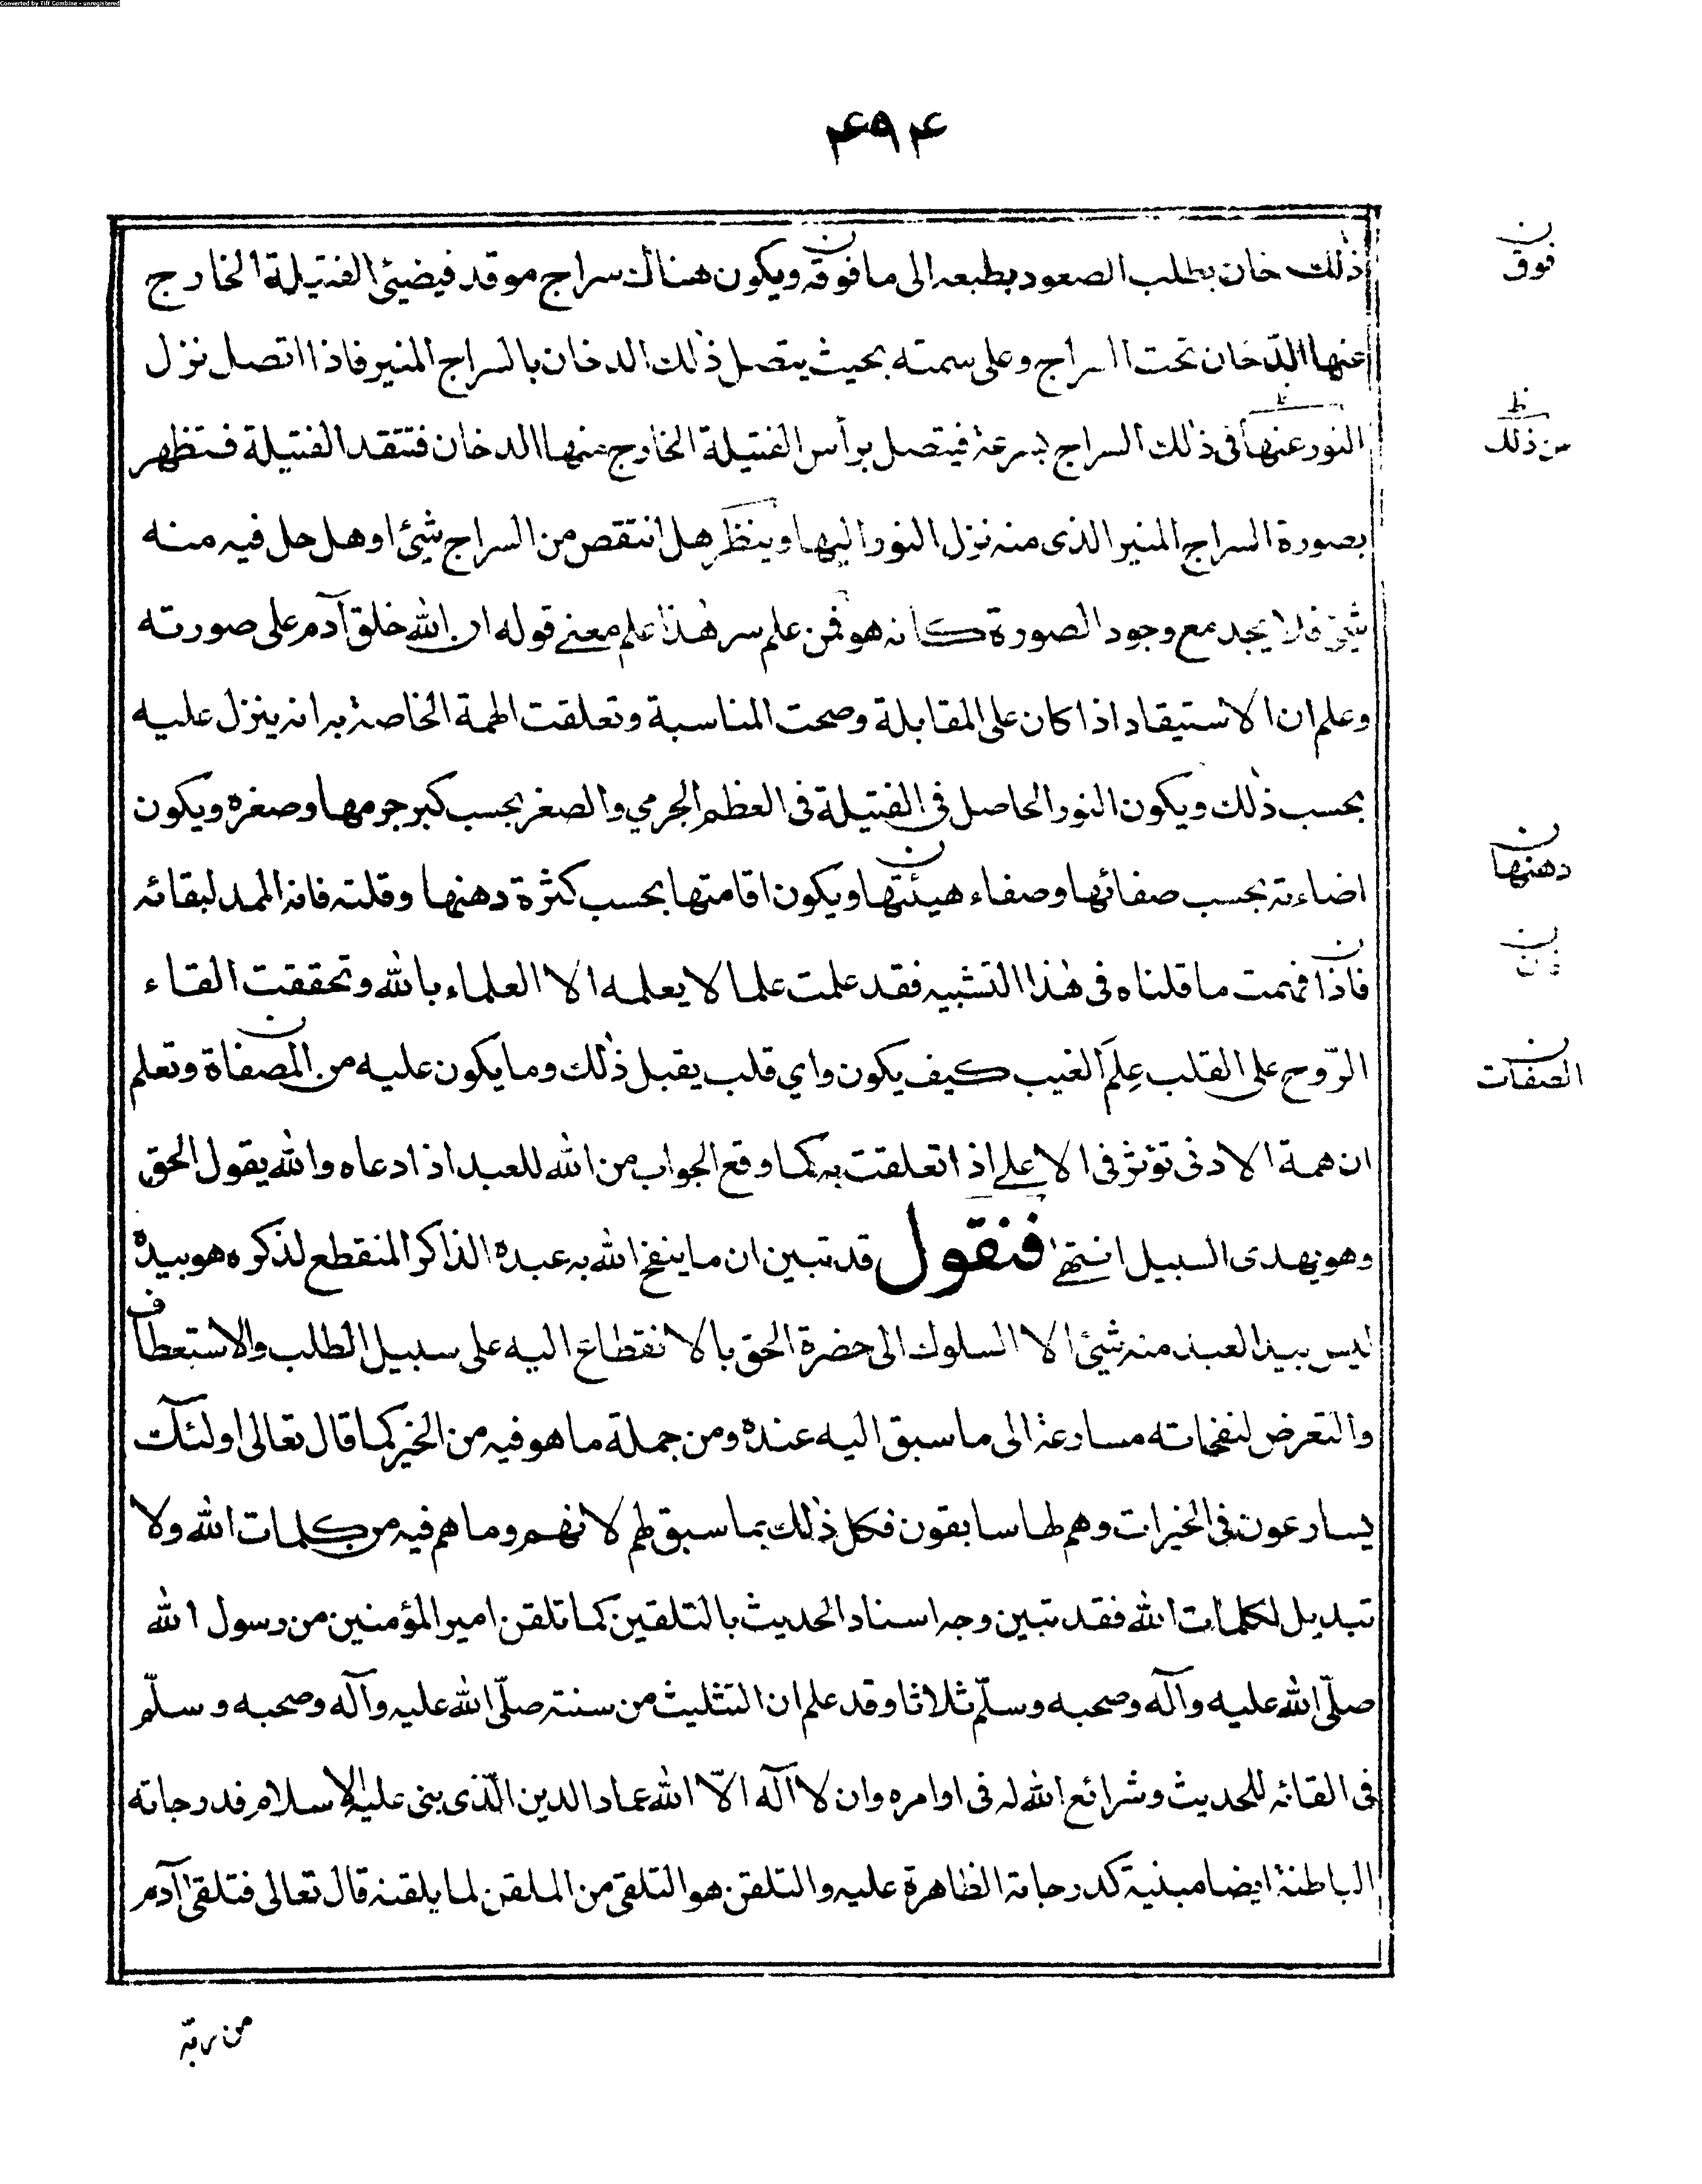 Converted by Tiff Combine - unregistered
۴۹۴
ذلك خان يطلب الصعود بطبعه الى ما فوقه ويكون هناك سراج موقد فيضيئ الفتيلة الخارج
عنها الدّخان تحت السراج وعلى سمته بحيث يتصل ذلك الدخان بالسراج المنير فاذا اتصل نزل
النور عنها فى ذلك السراج بسرعة فيتصل برأس الفتيلة الخارج منها الدخان فتتقد الفتيلة فتظهر
بصورة السراج المنير الذى منه نزل النور اليها وينظر هل انتقص من السراج شيئ او هل حل فيه منه
شيئ فلا يجد مع وجود الصورة كانه هو فمن علم سر هذا علم معنى قوله ان الله خلق آدم على صورته
وعلم ان الاستيقاد اذا كان على المقابلة وصحت المناسبة وتعلقت الهمة الخاصة به انه ينزل عليه
بحسب ذلك ويكون النور الحاصل فى الفتيلة فى العظم الجرمي والصغر بحسب كبر جرمها وصغره ويكون
اضاءته بحسب صفائها وصفاء هيئتها ويكون اقامتها بحسب كثرة دهنها وقلته فانه الممد لبقائه
فاذا فهمت ما قلناه فى هذا التشبيه فقد علمت علما لا يعلمه الا العلماء بالله وتحققت القاء
الرّوح على القلب عِلمَ الغيب كيف يكون واي قلب يقبل ذلك وما يكون عليه من المصفاة وتعلم
ان همة الادنى تؤثر فى الاعلى اذا تعلقت به كما وقع الجواب من الله للعبد اذا دعاه والله يقول الحق
وهو يهدى السبيل انتهى فنقول قد تبين ان ما ينفح الله به عبده الذاكر المنقطع لذكره هو بيده
ليس بيد العبد منه شيئ الا السلوك الى حضرة الحق بالانقطاع اليه على سبيل الطلب والاستعطاف
والتعرض لنفحاته مسارعة الى ما سبق اليه عنده ومن جملة ما هو فيه من الخير كما قال تعالى اولئك
يسارعون فى الخيرات وهم لها سابقون فكل ذلك بما سبق لهم لانهم وما هم فيه من كلمات الله ولا
تبديل لكلمات الله فقد تبين وجه اسناد الحديث بالتلقين كما تلقن امير المؤمنين من رسول الله
صلّى الله عليه وآله وصحبه وسلّم ثلاثا وقد علم ان التثليث من سنته صلّى الله عليه وآله وصحبه وسلّم
فى القائه للحديث وشرائع الله له فى اوامره وان لا آله الّا الله عماد الدين الّذى بنى عليه الاسلام فدرجاته
الباطنة ايضا مبنية كدرجاته الظاهرة عليه والتلقن هو التلقى من الملقن لما يلقنه قال تعالى فتلقى آدم
من ربّه
ن
فوق
ظ
من ذلك
ن
دهنها
ن
ن
الصفات